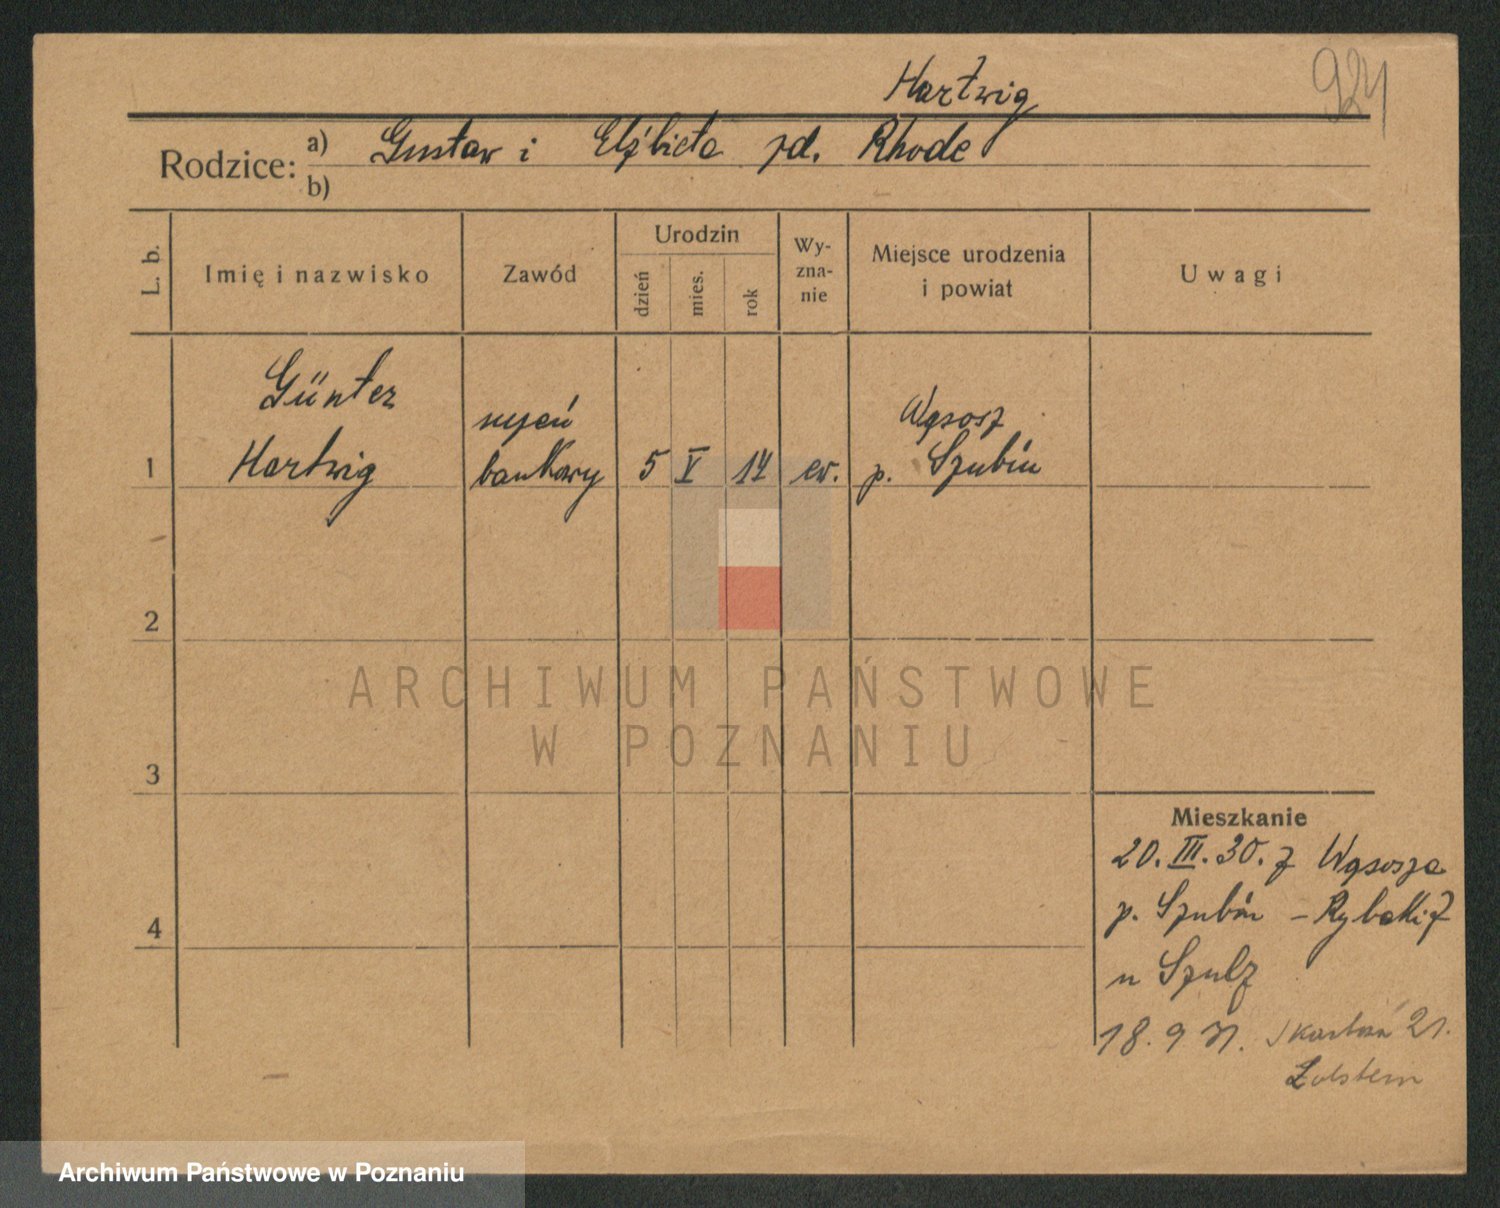 Hartwig
924
Rodzice: a) Gustaw i Elżbieta zd. Rhode
b)
L. b.
Imię i nazwisko
Zawód
Urodzin
dzień
mies.
rok
Wy-
zna-
nie
Miejsce urodzenia
i powiat
Uwagi
Günter
uczeń
Wąsosz
1 Hartwig bankowy 5 V 14 ew. p. Szubin
2
3
4
ARCHIWUM PAŃSTWOWE
W POZNANIU
Mieszkanie
20. III. 30. z Wąsosza
p. Szubin – Rybaki 7
u Szulz
18. 9 31. 21.
Archiwum Państwowe w Poznaniu